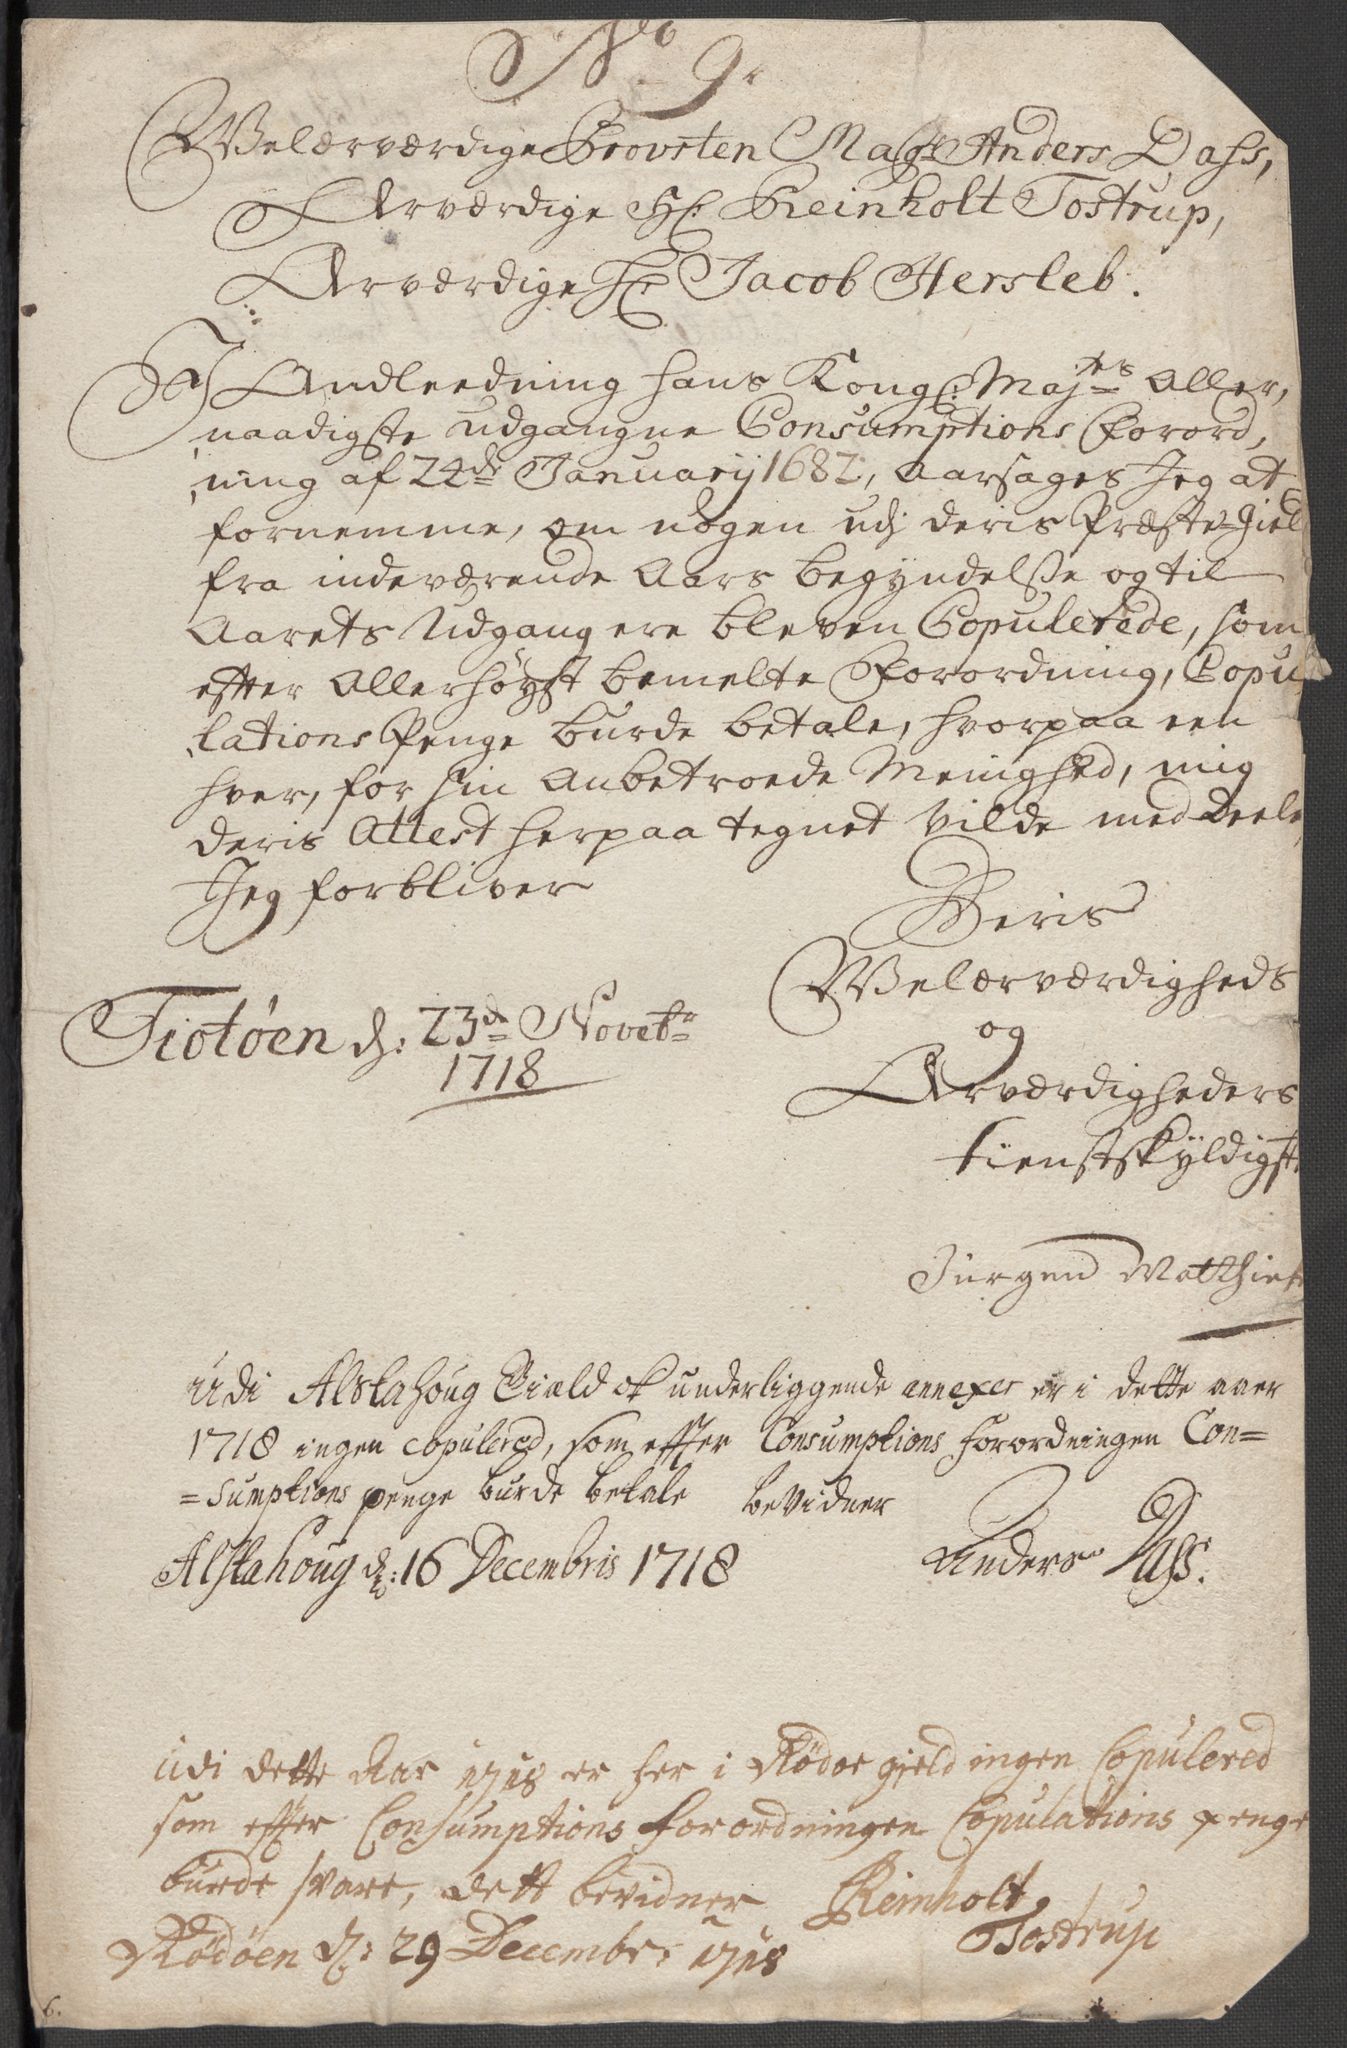 No 9.
Welærværdige Provsten Mag: Anders Dass,
Ærværdige Hr. Reinholt Tostrup,
Ærværdige Hr Jacob Hersleb.
I Andleedning hans Kongl: Majtes Aller,
naadigste udgangne Consumptions Forord,
ning af 24de January 1682, aarsages Jeg at
fornemme, om nogen udj deris Præste-Giel
fra indeværende Aars begyndelsse og til
Aarets Udgang ere bleven Copulerede, som
efter Allerhøyst bemelte Forordning, Copu
lations Penge burde betale, hvorpaa een
hver, for sin Anbetroede Meenighed, mig
deris Attest herpaa tegnet vilde med deele
Jeg forbliver
Deris
Welærværdigheds
og
Ærværdigheders
tienstskyldigst
Tiotøen d: 23de Novebr
1718
Jürgen Matthies
Udi Alstahoug Giæld ok underliggende annexer er i dette aar
1718 ingen copulered, som effter Consumptions forordningen Con=
=sumptions penge burde betale bevidner
Alstahoug d: 16 Decembris 1718 Anders Dass.
Udi dette Aar 1718 er her i Rödöe gield ingen Copulered
som effter Consumptions forordningen Copulations penge
burde svare, dett bevidner Reinholt
Rödöen d: 29 Decembr: 1718 Tostrup
6.